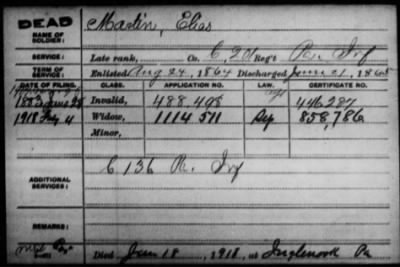 DEAD
NAME OF SOLDIER: Martin, Elias
SERVICE: Late rank, Co. C 201 Reg't Pa. Inf
TERM OF SERVICE: Enlisted Aug 24, 1864 Discharged June 21, 1865
DATE OF FILING. CLASS. APPLICATION NO. LAW. CERTIFICATE NO.
Invalid, 488.498 446287
1918 July 4 Widow, 1114 511 858,786
Minor,
ADDITIONAL SERVICES: C 136 Pa. Inf
REMARKS:
Died Jun 18, 1918, at Inglenook Pa